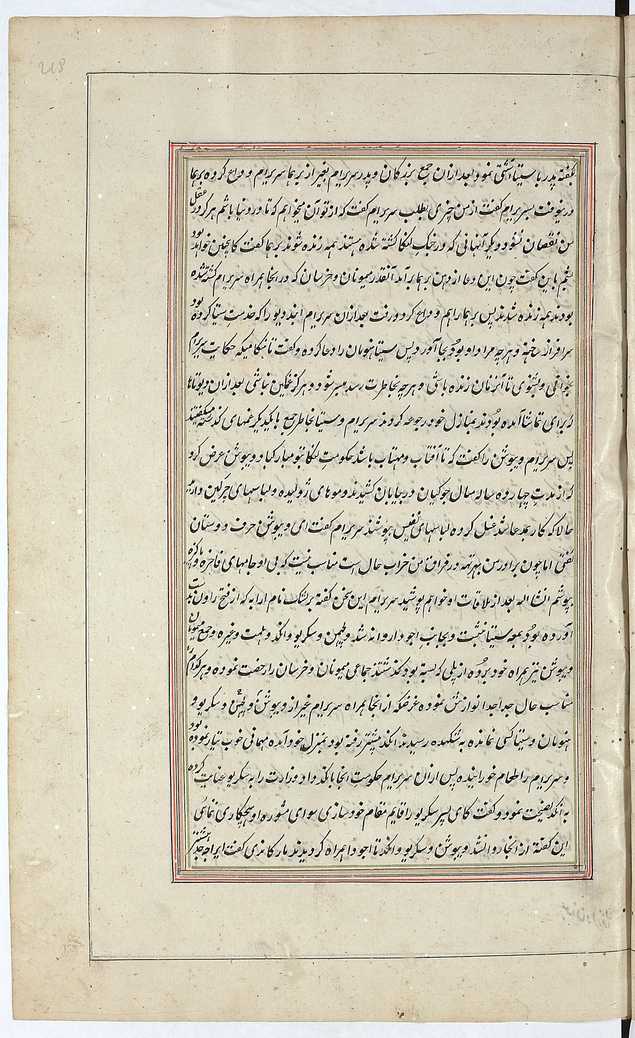 بگفته پدر با سیتا آشتی نمود بعد ازان جمع بزرگان و پدر سریرام بغیر از برهما سریرام و وداع کرده برهما
در نیوقت بسریرام گفت از من چیزی بطلب سریرام گفت که از تو آن میخواهم که تا در دنیا باشم هرگز در عقل
من نقصان نشود و دیگر آنهائی که در جنگ لنکا کشته شده هستند همه زنده شوند برهما گفت که همچنین خواهد بود
چون این دعا از دهن برهما برآمد آنقدر میمونان و خرسان که در انجا همراه سریرام کشته شده
بودند همه زنده شدند پس برهما راهم وداع کرد و رفت بعد ازان سریرام ایند دیو را که خدمت سیتا کرده بود
سرافراز ساخته و هرچه مراد او بود بجا آورد پس سیتا هنومان را دعا کرده و گفت تا هنگامیکه حکایت سریرام
بخوانی و بشنوی تا آنزمان زنده باشی و هرچه بخاطرت رسد میسر شود و هرگز غمگین نباشی بعد ازان دیوتاها
که برای تماشا آمده بودند بمنازل خود رجوعه کردند سریرام و سیتا بخاطر جمع با یکدیگر غمهای گذشته میگفتند
پس سریرام ویبوشن را گفت که تا آفتاب و مهتاب باشد حکومت لنکا بتو مبارکباد ویبوشن عرض کرد
که از مدت چهارده ساله مثال جوکیان در بیابان کشیدند و موهای ژولیده و لباسهای چرکین دارید
حالا که کار بمدعا شد غسل کرده لباسهای نفیس بپوشند سریرام گفت ای ویبوشن حرف دوستان
گفتی اما چون برادر من بهرتهه در فراق من خراب حال است مناسب نیست که بی او جامهای فاخره و پاکیزه
بپوشم انشا اله بعد از ملاقات او خواهم پوشید سریرام این سخن گفته بر پشپک نام ارابه که از فتح راون بدست
آورده بود بمعه سیتا نشست و بجانب اجودا روانه شد و لچمن و سکریو و انکد و همت و غیره و جمع میمونان
و ویبوشن نیز همراه خود برده از پلی که بسته بود گذشتند جماعی میمونان و خرسان را رخصت نموده و هر کدام را
مناسب حال جدا جدا نوازش نموده غرضکه از انجا همراه سریرام غیر از ویبوشن و لچمن و سکریو و
هنومان و سیتا کسی نمانده به سکهنده رسیدند انکد پیشتر رفته بود بمنزل خود آمده مهمانی خوب تیار نموده بود
و سریرام را طعام خورانیده پس ازان سریرام حکومت انجا بانکد داد و وزارت را به سکریو عنایت کرده
به انکد نصیحت نمود و گفت که ای پسر سکریو را قایم مقام خود سازی سوای مشوره او هیچکاری نمائی
این گفته از انجا روانشد و ویبوشن و سکریو و انکد تا اجودا همراه گردیدند مارکاندی گفت ای راجه جدشتر